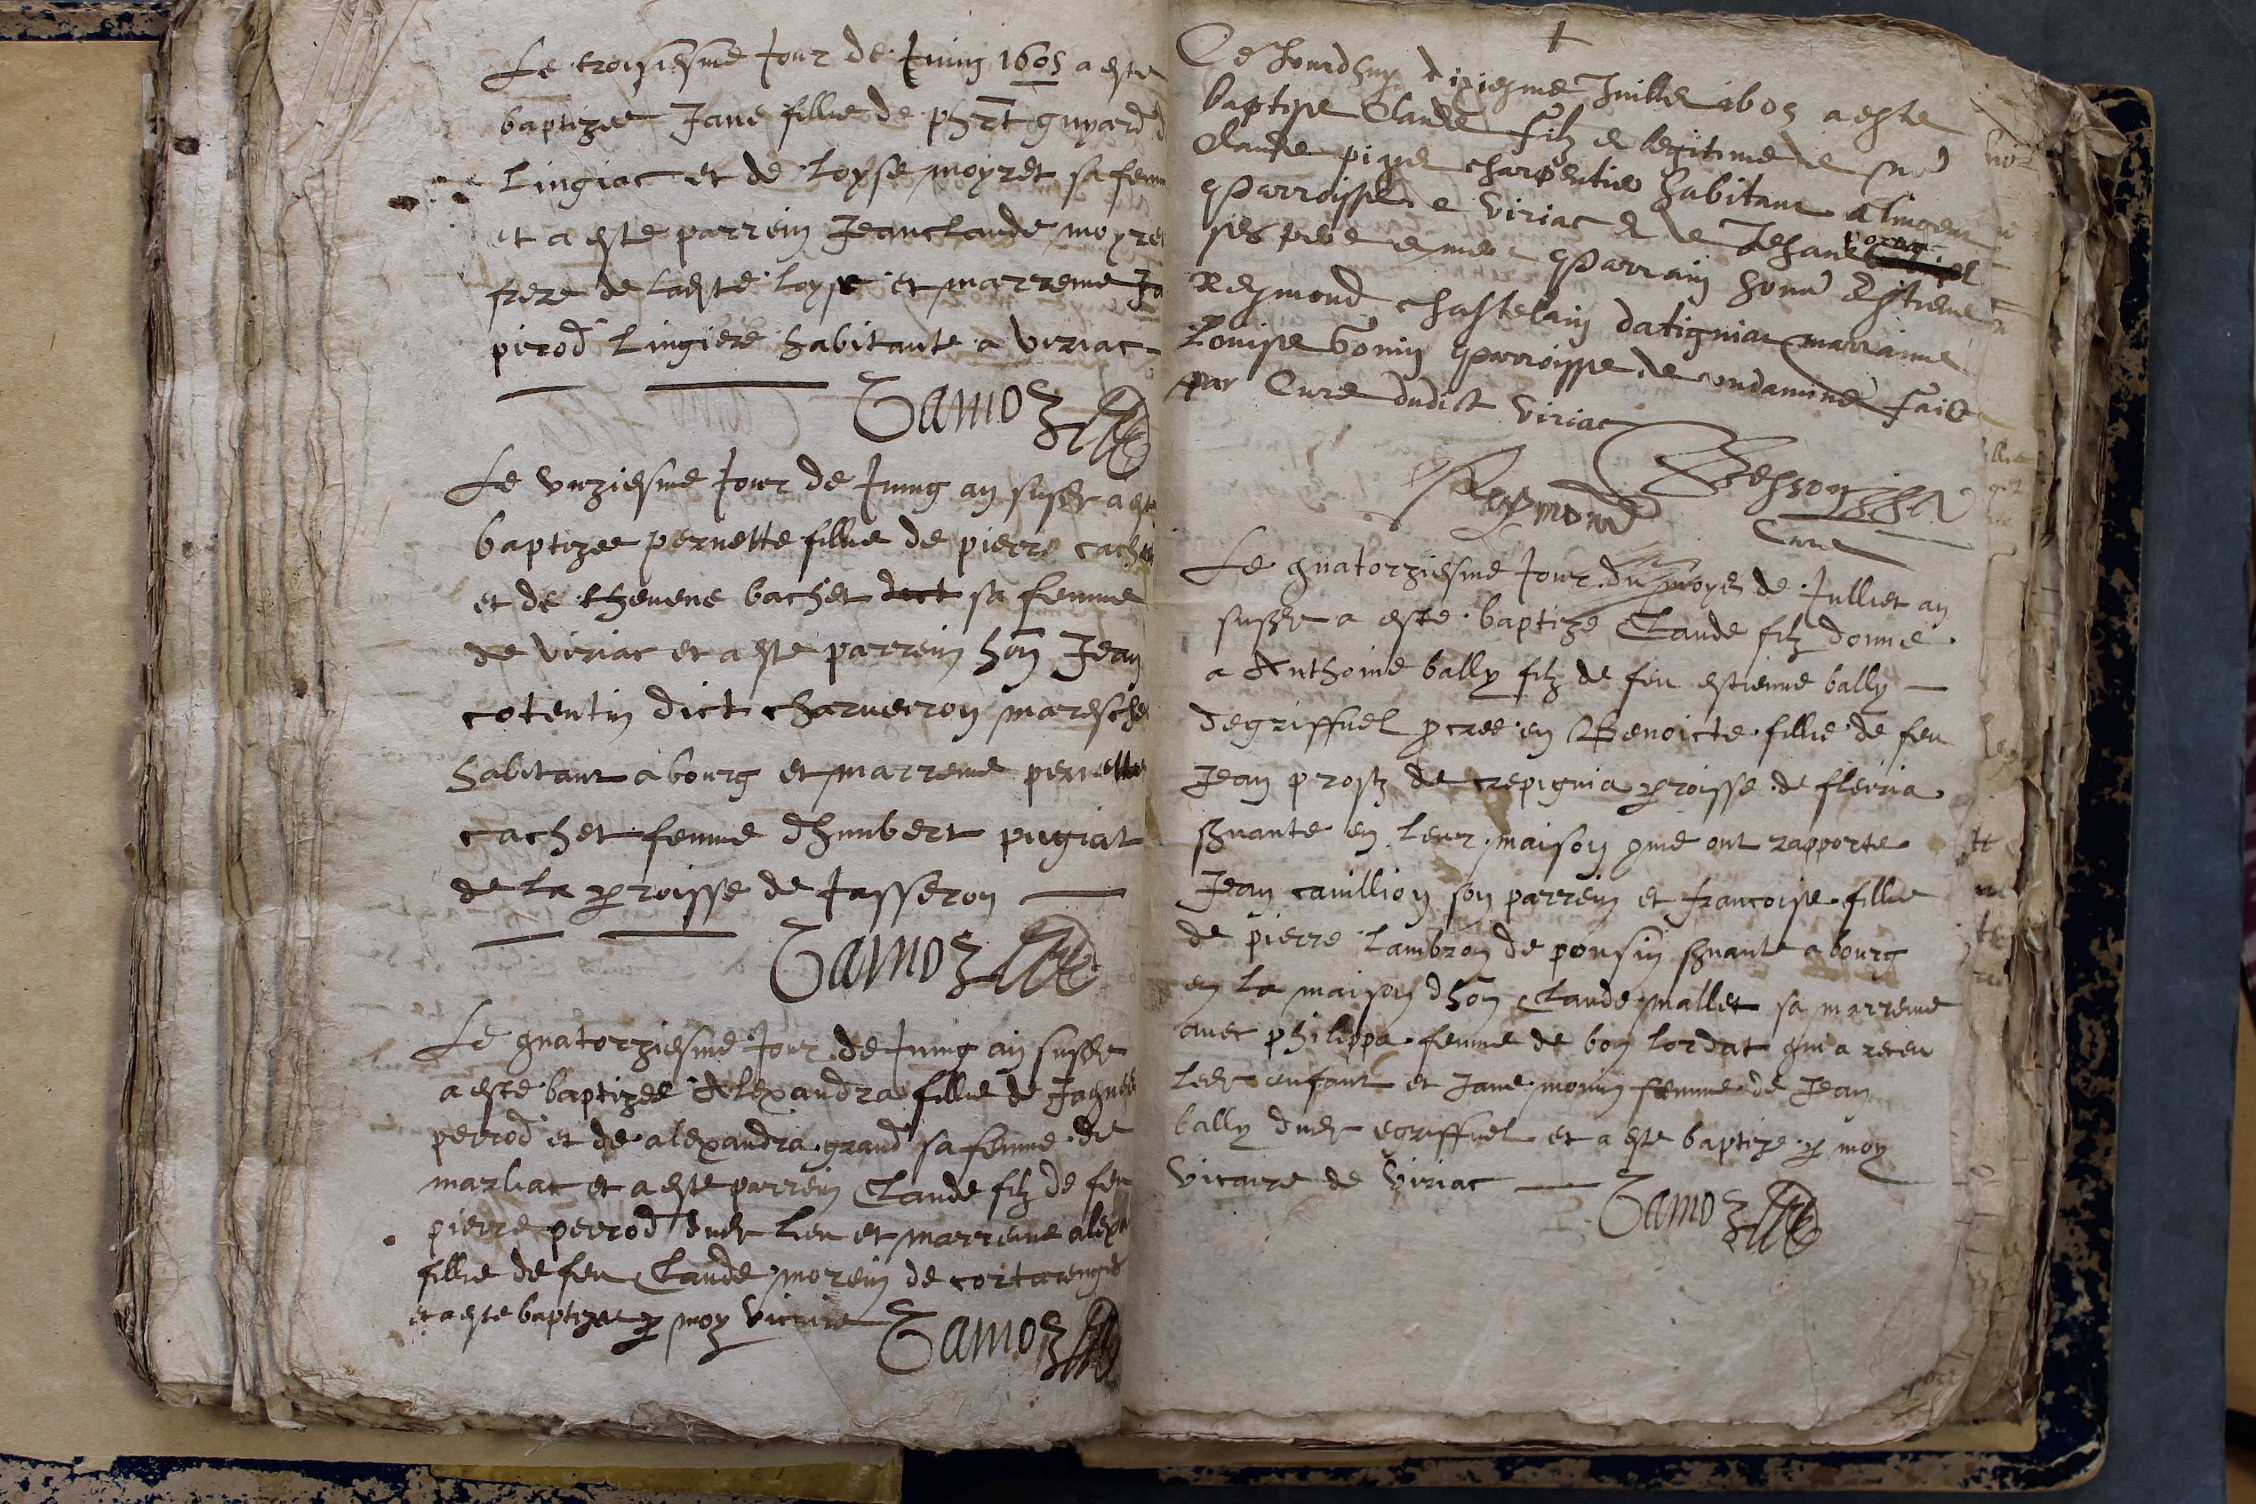 Le troisiesme Jour de Juing 1605 a este
baptizee Jane fillie de phzt guyard d
Lingiac et de loyse moyret sa fem
et a este parrein Jeanclaude moyre
frere de ladste loyse et marreine Ja
pirod Lingiere habitante a viriac
Tamoz
Le vnziesme Jour de Juing an susdt a est
baptizee pernette fillie de pierre cach
et de theuene bachet dict sa femme
de viriac et a este parrein hon Jean
cotentin dict charueron maresch
habitant a bourg et marreine pernette
cachet femme dhumbert pugiat
de la proisse de Jasseron
Tamoz
Le quatorziesme Jour de Juing an susdt
a este baptizee Alexandra fillie de Jaque
perrod et de alexandra grand sa femme de
marliac et a este parrein Claude filz de feu
pierre perrod dudt lieu et marreine alex
fillie de feu Claude morein de cortarengie
et a este baptizee p moy vicaire Tamoz
Ce Jourdhuy dixiesme Juillet 1605 a este
baptise Claude filz et legitime de
Claude charpentier habitant a
parroisse e viriac et de Jehane
ses pere e mere parrain hon Estienne
Reymond chastelain datigniac marraine
Louise Gonin parroisse de vndamine faict
par Cure dudict viriac
Reymond Besson
Cure
Le quatorziesme Jour du moys de Julliet an
susdt a este baptize Claude filz donne
a Anthoine bally filz de feu estienne bally
degriffuel pcree en Benoicte fillie de feu
Jean prost de crepignia proisse de fleiria
sruante en leur maison qme ont rapporte
Jean cauillion son parrein et francoise fillie
de pierre Lambron de ponsin sruante a bourg
en la maison dhon Claude mallet sa marreine
auec philippa femme de bon lordat qui a receu
ledt enfant et Jane monin femme de Jean
bally dudt egriffuel et a este baptize p moy
vicaire de viriac Tamoz